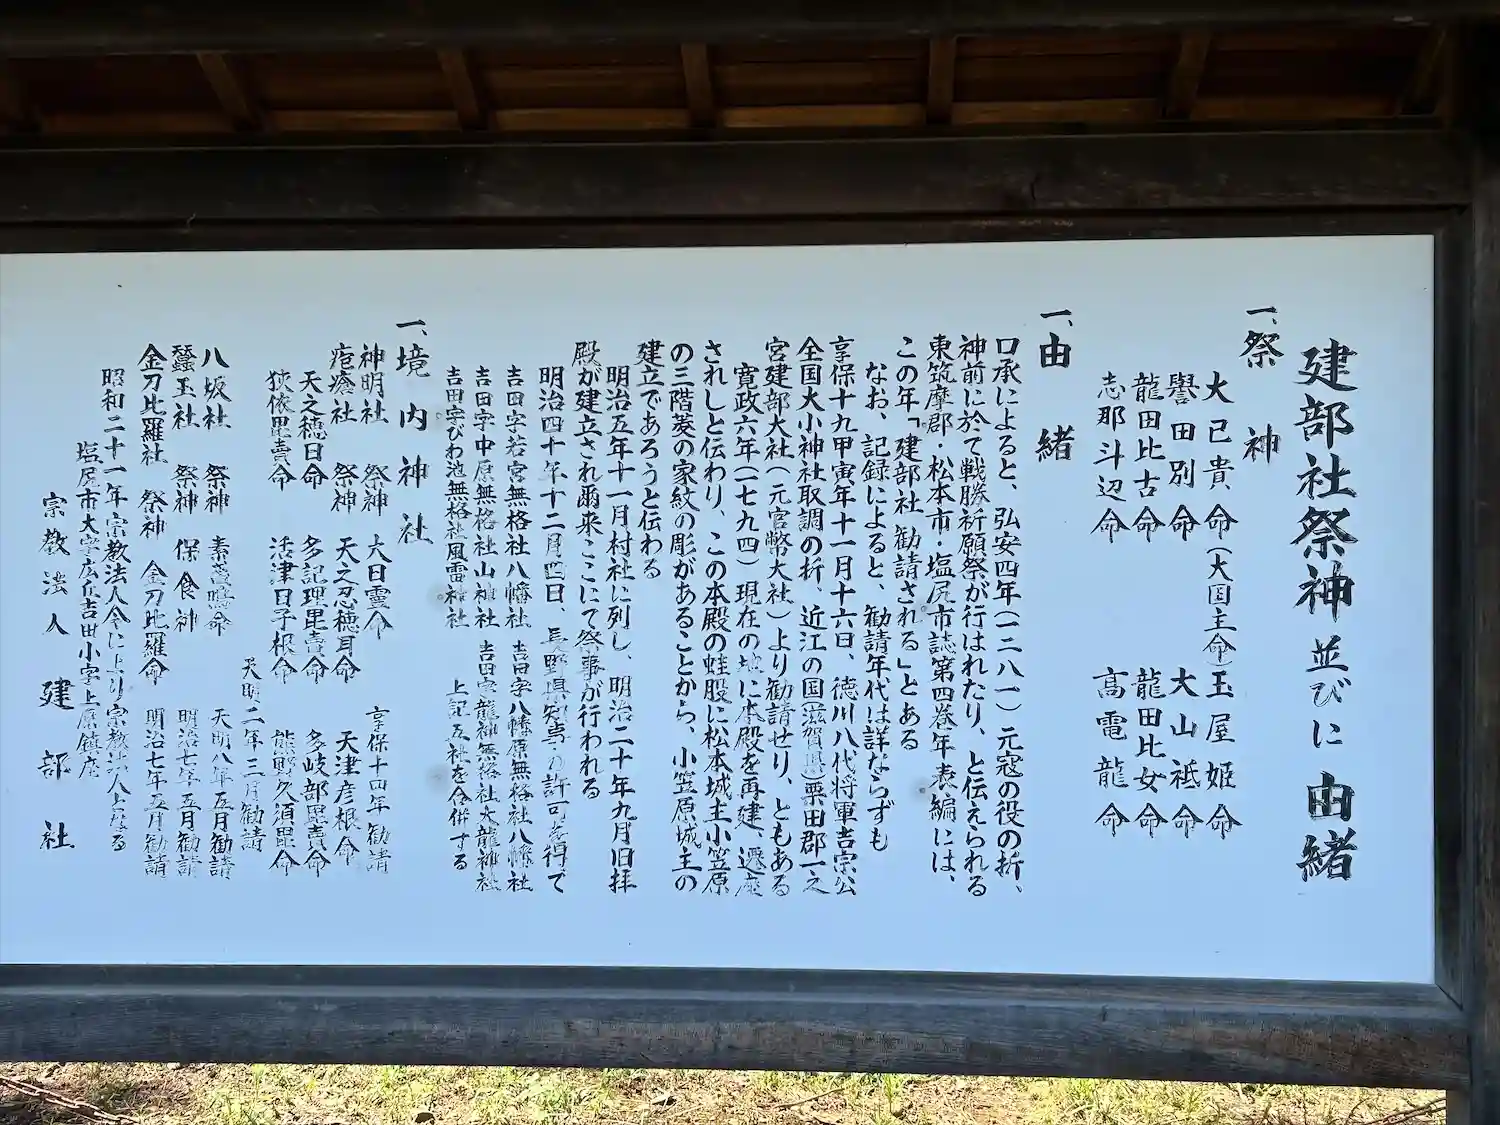 建部社祭神並びに由緒
一、祭神
大己貴命(大国主命)玉屋姫命
譽田別命 大山祗命
龍田比古命 龍田比女命
志那斗辺命 高龗龍命
一、由緒
口承によると、弘安四年(一二八一)元寇の役の折、
神前に於て戦勝祈願祭が行はれたり、と伝えられる
東筑摩郡・松本市・塩尻市誌第四巻年表編には、
この年「建部社 勧請される」とある
なお、記録によると、勧請年代は詳ならずも
享保十九甲寅年十一月十六日、徳川八代将軍吉宗公
全国大小神社取調の折、近江の国(滋賀県)栗田郡一之
宮建部大社(元官幣大社)より勧請せり、ともある
寛政六年(一七九四)現在の地に本殿を再建、遷座
されしと伝わり、この本殿の蛙股に松本城主小笠原
の三階菱の家紋の彫があることから、小笠原城主の
建立であろうと伝わる
明治五年十一月村社に列し、明治二十年九月旧拝
殿が建立され爾来ここにて祭事が行われる
明治四十年十二月四日、長野県知事の許可を得て
吉田字若宮無格社八幡社 吉田字八幡原無格社八幡社
吉田字中原無格社山神社 吉田字龍神無格社大龍神社
吉田字びわ池無格社風雷神社 上記五社を合併する
一、境内神社
神明社 祭神 大日孁命 享保十四年勧請
疱瘡社 祭神 天之忍穂耳命 天津彦根命
天之穂日命 多記理毘賣命 多岐都毘賣命
狭依毘賣命 活津日子根命 熊野久須毘命
天明二年三月勧請
八坂社 祭神 素戔嗚命 天明八年五月勧請
蠶玉社 祭神 保食神 明治七年五月勧請
金刀比羅社 祭神 金刀比羅命 明治七年五月勧請
昭和二十一年宗教法人令により宗教法人となる
塩尻市大字広丘吉田小字上原鎮座
宗教法人 建部社